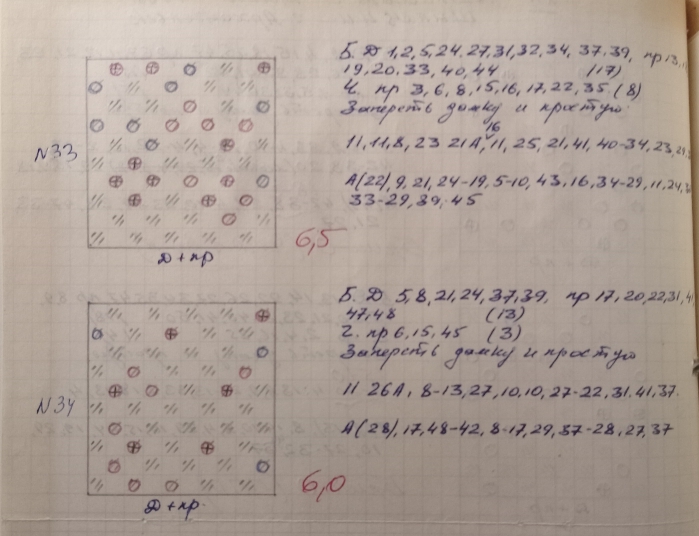 Б. Д 1,2,5,24,27,31,32,34, 37,39, пр 13,
19,20,33,40,44 (17)
Ч. пр 3,6,8,15,16,17,22,35 (8)
Запереть дамку и простую
16
11,11,8, 23 21А, 11, 25, 21,41, 40-34, 23,
№33
А(22), 9, 21, 24-19, 5-10, 43, 16, 34-29, 11, 24,
33-29, 39, 45
6,5
Д + пр
Б. Д 5,8,21,24,37,39, пр 17,20,22,31,
47,48 (13)
Ч. пр 6,15,45 (3)
Запереть дамку и простую
№34
11 26А, 8-13, 27, 10, 10, 27-22, 31. 41, 37.
А(28), 17, 48-42, 8-17, 29, 37-28, 27, 37
6,0
Д + пр.